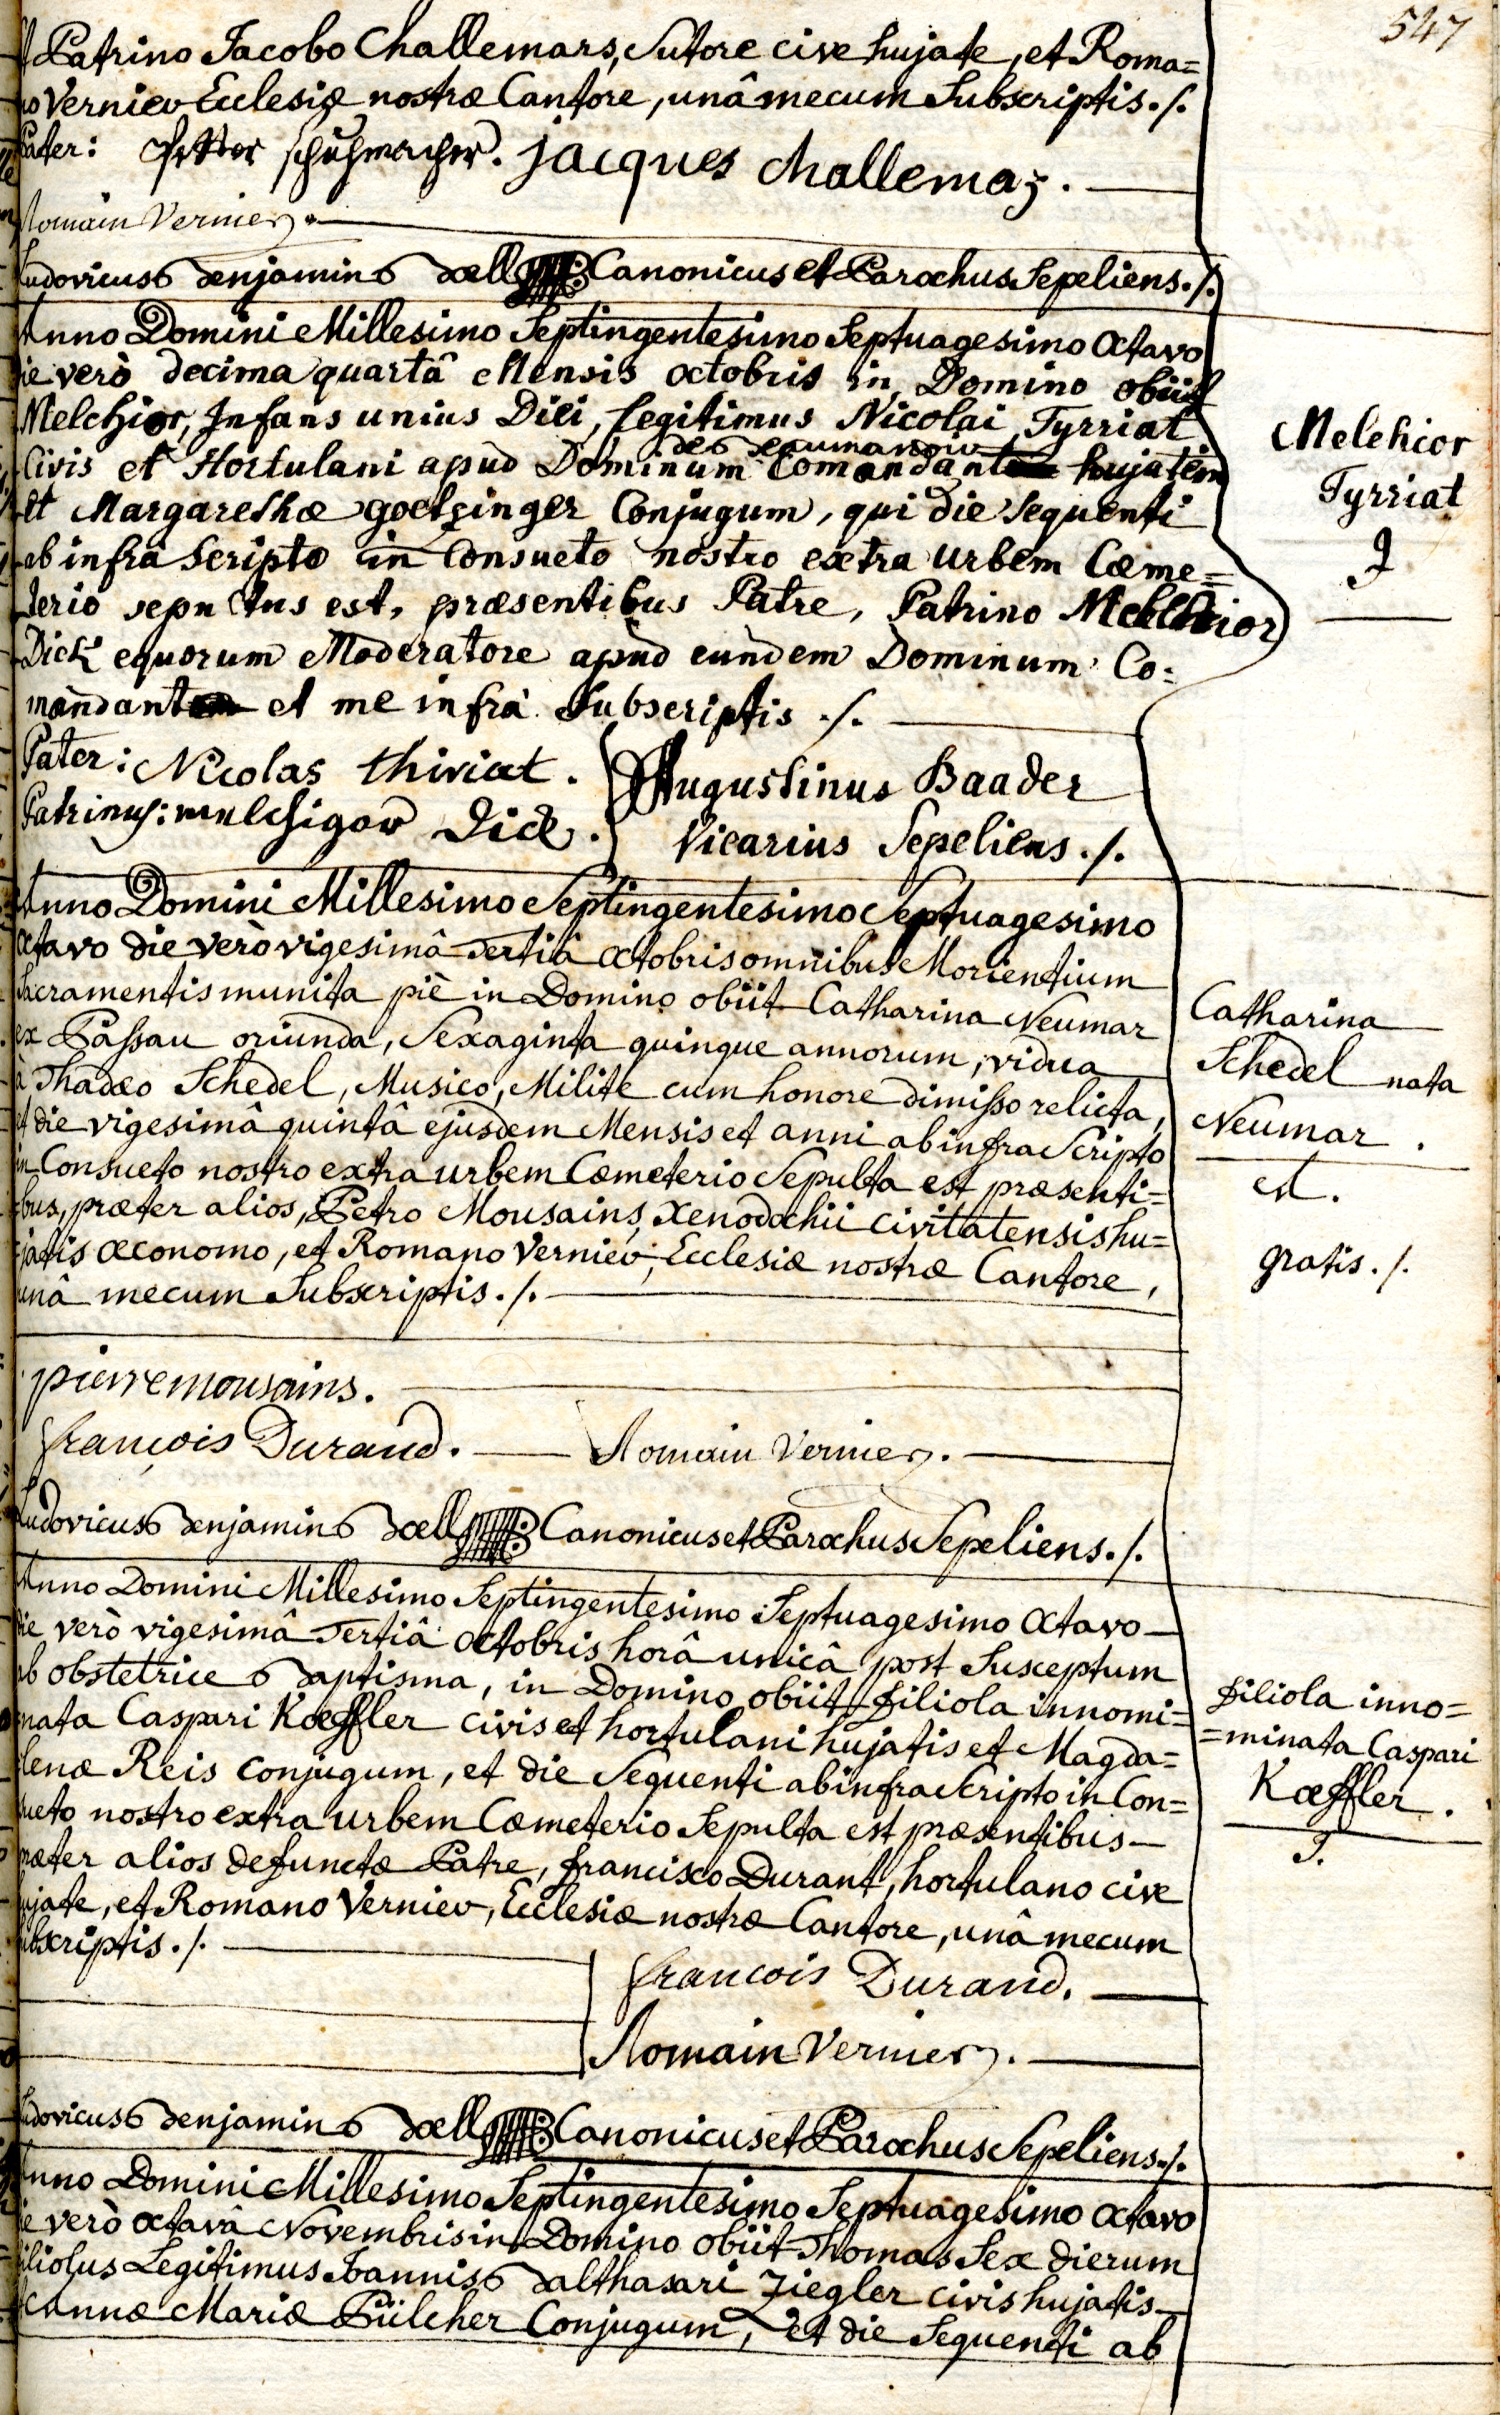 547
et Patrino Jacobo Challemars, Sutore cive hujate, et Roma=
no Vernier Ecclesiæ nostræ Cantore, unâ mecum Subscriptis ./.
Pater: Petter schuhmacher. jacques challemaz.
Romain Vernier.
Ludovicus Benjamin Doell Canonicus et Parochus Sepeliens ./.
Anno Domini Millesimo Septingentesimo Septuagesimo Octavo
die verò decima quartâ Mensis octobris in Domino obiit
Melchior, Infans unius Diei, legitimus Nicolai Tyrriat
Civis et Hortulani apud Dominum Comandant hujatem
et Margarethæ goetzinger Conjugum, qui die sequenti
ab infrà Scripto in Consueto nostro extra urbem Cœme=
terio sepultus est, præsentibus Patre, Patrino Melchior
Dick equorum Moderatore apud eundem Dominum Co=
mandant et me infrà Subscriptis ./.
Pater: Nicolas thiriat.
Patrinus: melchigor Dick.
Augustinus Baader
Vicarius Sepeliens ./.
Melchior
Tyrriat
Anno Domini Millesimo Septingentesimo Septuagesimo
octavo die verò vigesimâ Tertiâ Octobris omnibus Morientium
Sacramentis munita piè in Domino obiit Catharina Neumar
ex Passau oriunda, Sexaginta quinque annorum, vidua
à Thadæo Schedel, Musico, Milite cum honore dimisso relicta,
et die vigesimâ quintâ ejusdem Mensis et anni ab infra Scripto
in Consueto nostro extra urbem Cœmeterio Sepulta est præsenti=
=bus, præter alios, Petro Mousains, Xenodochii civitatensis hu=
=jatis œconomo, et Romano Vernier, Ecclesiæ nostræ Cantore,
unâ mecum Subscriptis ./.
Catharina
Schedel nata
Neumar.
gratis ./.
pierre mousains.
françois Durand. Romain Vernier.
Ludovicus Benjamin Doell Canonicus et Parochus Sepeliens ./.
Anno Domini Millesimo Septingentesimo Septuagesimo Octavo
die verò vigesimâ Tertiâ Octobris horâ unicâ post Susceptum
ab obstetrice Baptisma, in Domino obiit filiola innomi=
nata Caspari Kœffler civis et hortulani hujatis et Magda=
lenæ Reis conjugum, et die Sequenti ab infra Scripto in Con=
sueto nostro extra urbem Cœmeterio Sepulta est præsentibus
præter alios defunctæ Patre, francisco Durant, hortulano cive
hujate, et Romano Vernier, Ecclesiæ nostræ Cantore, unâ mecum
subscriptis ./.
filiola inno=
=minata Caspari
Kœffler.
francois Durand.
Romain Vernier.
Ludovicus Benjamin Doell Canonicus et Parochus Sepeliens ./.
Anno Domini Millesimo Septingentesimo Septuagesimo Octavo
die verò octavâ Novembris in Domino obiit Thomas Sex dierum
filiolus Legitimus Joannis Balthasari Ziegler civis hujatis
et Annæ Mariæ Pülcher Conjugum, et die Sequenti ab